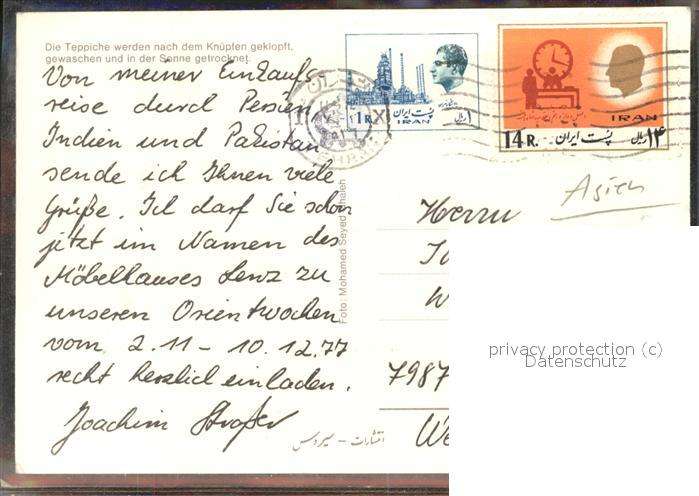 Die Teppiche werden nach dem Knüpfen geklopft,
gewaschen und in der Senne getrocknet.
Von meiner Einkaufs
reise durch Persien
Indien und Pakistan
sende ich Ihnen viele
Grüße. Ich darf Sie schon
jetzt im Namen des
Möbelhauses Lenz zu
unseren Orientwochen
vom 2.11 - 10.12.77
recht herzlich einladen.
Joachim
Foto: Mohamed Seyed
1 R.
پست ایران
ریال ۱
IRAN
IRAN
14 R.
پست ایران
۱۴ ریال
Asien
Herrn
7987
We
انتشارات - سیروس
privacy protection (c)
Datenschutz